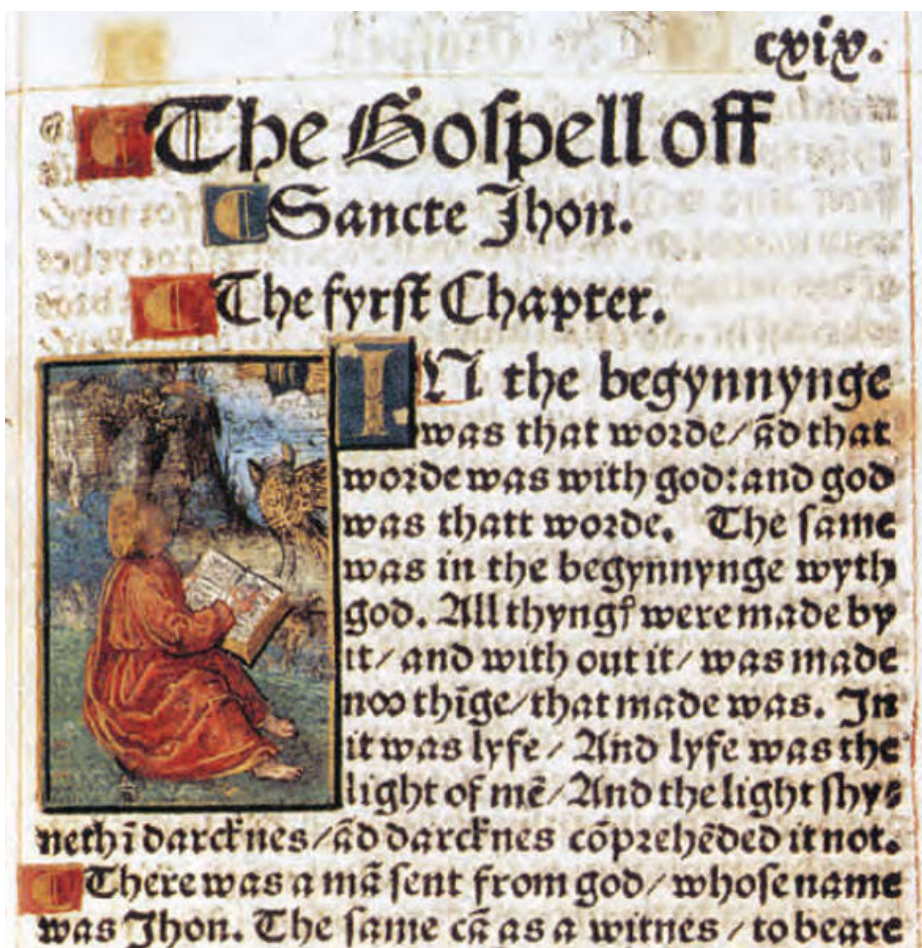 cxix.
The Gospell off
Sancte Jhon.
The fyrst Chapter.
IN the begynnynge
was that worde/ ād that
worde was with god: and god
was thatt worde. The same
was in the begynnynge wyth
god. All thyngꝭ were made by
it/ and with out it/ was made
noo thīge/ that made was. In
it was lyfe/ And lyfe was the
light of mē/ And the light shy⸗
neth ī darcknes/ ād darcknes cōprehēded it not.
There was a mā sent from god/ whose name
was Jhon. The same cā as a witnes/ to beare